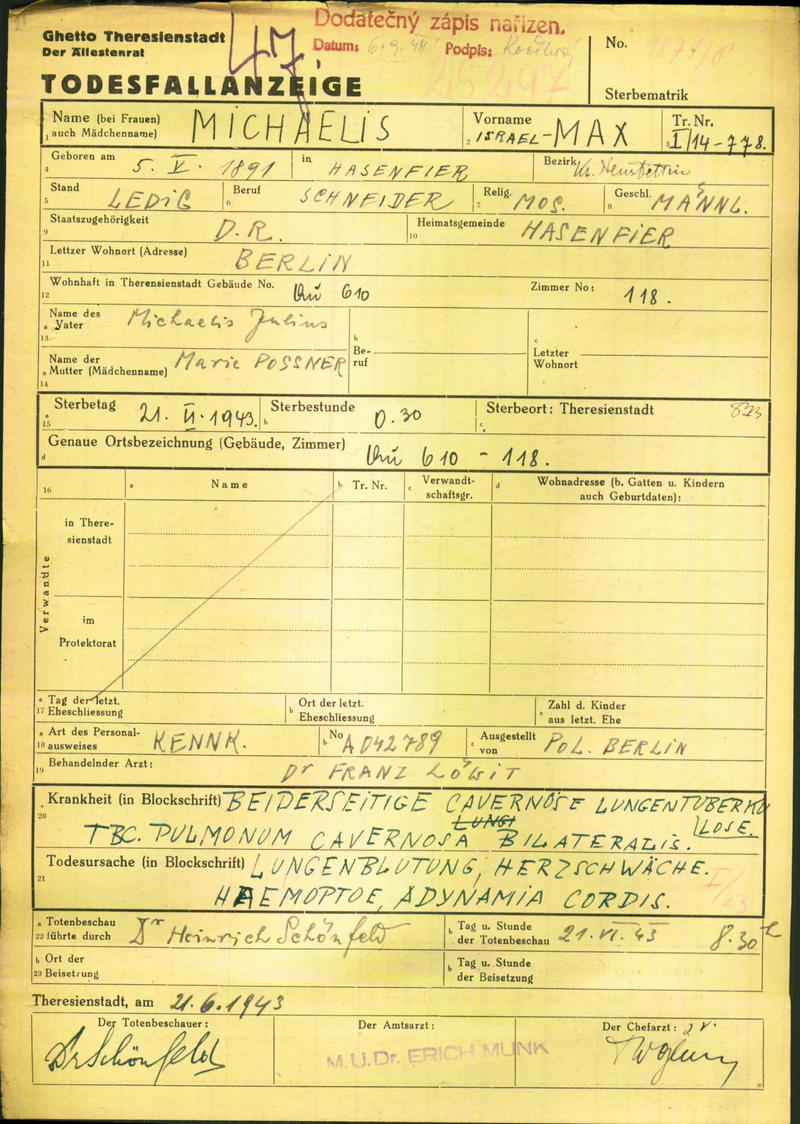 Dodatečný zápis nařízen.
Ghetto Theresienstadt
Der Ältestenrat
47
Datum: 6.9.48 Podpis:
No.
TODESFALLANZEIGE
Sterbematrik
Name (bei Frauen) MICHAELIS Vorname ISRAEL-MAX Tr. Nr.
1 auch Mädchenname) 2 3 I/14-778.
Geboren am 5. V. 1891 in HASENFIER Bezirk Kr. Neustettin
4
Stand LEDIG Beruf SCHNEIDER Relig. MOS. Geschl. MÄNNL.
5 6 7 8
Staatszugehörigkeit D.R. Heimatsgemeinde HASENFIER
9 10
Lettzer Wohnort (Adresse) BERLIN
11
Wohnhaft in Therensienstadt Gebäude No. 610 Zimmer No: 118.
12
Name des Michaelis Julius
a Vater
13 b c
Name der Marie POSSNER Be- Letzter
a Mutter (Mädchenname) ruf Wohnort
14
a Sterbetag 21. VI. 1943. Sterbestunde 0.30 Sterbeort: Theresienstadt
15 b c
Genaue Ortsbezeichnung (Gebäude, Zimmer) 610 - 118.
d
16 a Name b Tr. Nr. c Verwandt- d Wohnadresse (b. Gatten u. Kindern
schaftsgr. auch Geburtdaten):
Verwandte
in There-
sienstadt
im
Protektorat
a Tag der letzt. b Ort der letzt. c Zahl d. Kinder
17 Eheschliessung Eheschliessung aus letzt. Ehe
a Art des Personal- KENNK. b No A 042789 c Ausgestellt POL. BERLIN
18 ausweises von
Behandelnder Arzt: Dr FRANZ LÖWIT
19
Krankheit (in Blockschrift) BEIDERSEITIGE CAVERNÖSE LUNGENTUBERKU
20 LOSE.
TBC. PULMONUM CAVERNOSA BILATERALIS.
Todesursache (in Blockschrift) LUNGENBLUTUNG, HERZSCHWÄCHE.
21
HAEMOPTOE, ADYNAMIA CORDIS.
a Totenbeschau Dr Heinrich Schönfeld b Tag u. Stunde 21. VI. 43 8.30 h
22 führte durch der Totenbeschau
b Ort der b Tag u. Stunde
23 Beisetzung der Beisetzung
Theresienstadt, am 21.6.1943
Der Totenbeschauer: Der Amtsarzt: Der Chefarzt:
Dr Schönfeld M.U.Dr. ERICH MUNK